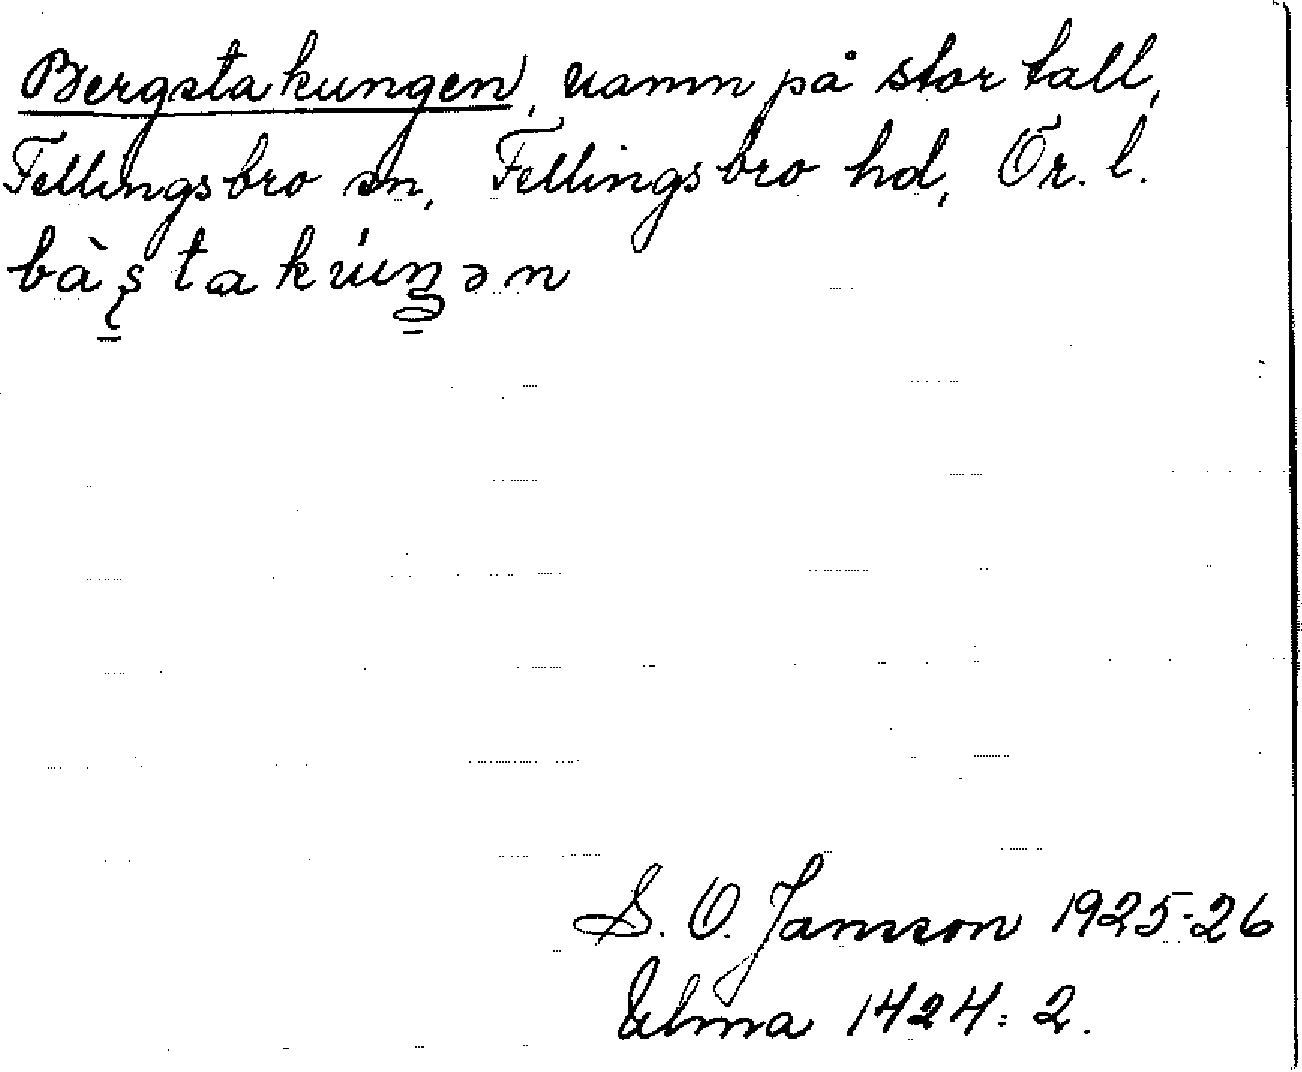 Bergstakungen, namn på stor tall,
Fellingsbro sn, Fellingsbro hd, Ör. l.
bàʂtakúŋən
S. O. Jansson 1925-26
Ulma 1424:2.